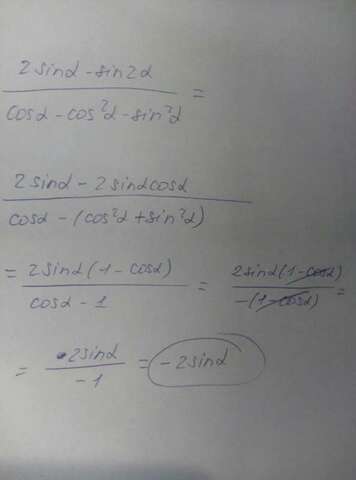 2sinα - sin2α
cosα - cos²α - sin²α =
2sinα - 2sinαcosα
cosα - (cos²α + sin²α)
= 2sinα(1 - cosα) = 2sinα(1 - cosα) =
cosα - 1 -(1 - cosα)
= 2sinα = -2sinα
-1